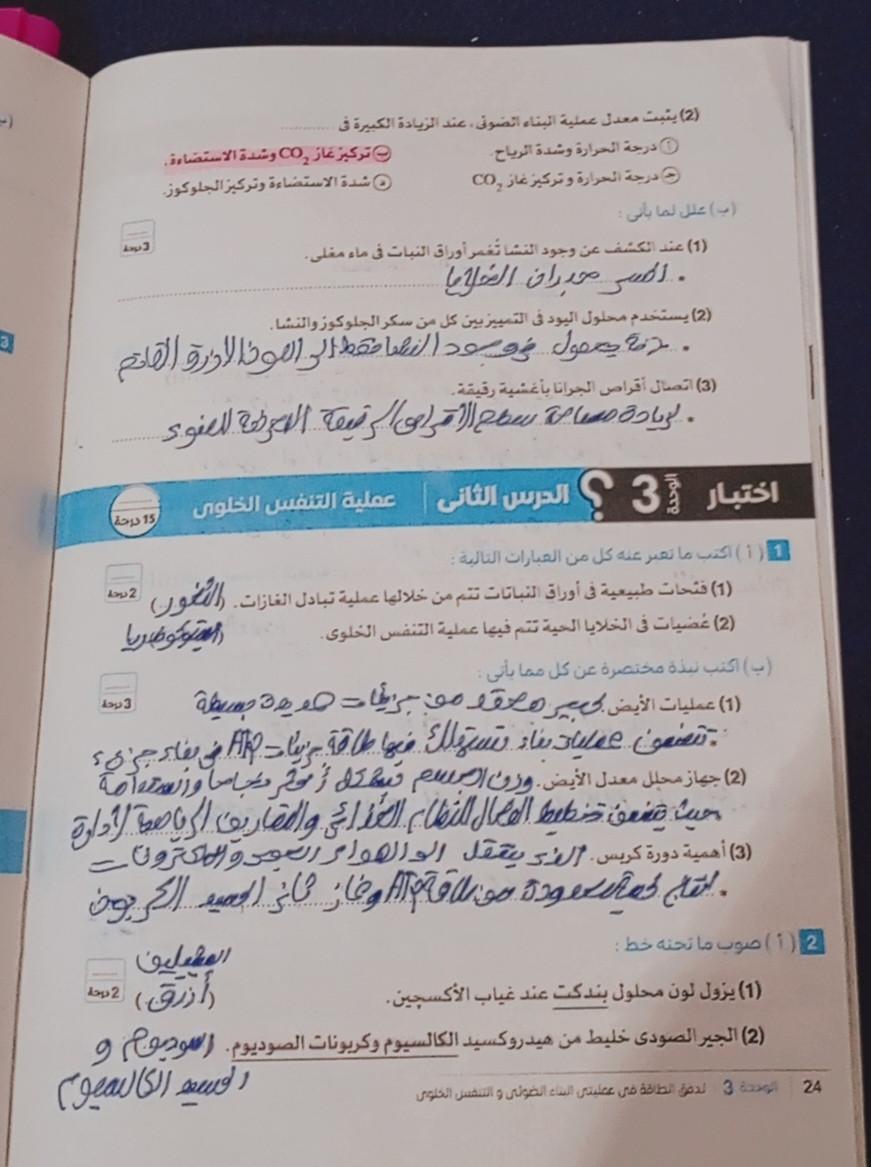 (2) يثبت معدل عملية البناء الضوئى، عند الزيادة الكبيرة فى ............
أ درجة الحرارة وشدة الرياح.
ب تركيز غاز CO2 وشدة الاستضاءة.
ج درجة الحرارة وتركيز غاز CO2
د شدة الاستضاءة وتركيز الجلوكوز.
(ب) علل لما يأتى :
3 درجة
(1) عند الكشف عن وجود النشا تُغمر أوراق النبات فى ماء مغلى.
جدران الخلايا
(2) يستخدم محلول اليود فى التمييز بين كل من سكر الجلوكوز والنشا.
فى وجود النشا فقط إلى اللون الأزرق
(3) اتصال أقراص الجرانا بأغشية رقيقة.
. لزيادة مساحة سطح الأقراص الرقيقة المعرضة للضوء
اختبار 3 الوحدة ؟ الدرس الثانى | عملية التنفس الخلوى
15 درجة
1 (أ) اكتب ما تعبر عنه كل من العبارات التالية :
2 درجة
(1) فتحات طبيعية فى أوراق النباتات تتم من خلالها عملية تبادل الغازات. (الثغور)
(2) عُضيات فى الخلايا الحية تتم فيها عملية التنفس الخلوى. (الميتوكوندريا)
(ب) اكتب نبذة مختصرة عن كل مما يأتى :
3 درجة
(1) عمليات الأيض. كبير معقد من جزيئات عديدة بسيطة
. تتضمن عمليات بناء تستهلك فيها طاقة جزيئات ATP فى بناء جزىء
(2) جهاز محلل معدل الأيض. وزن الجسم بشكل أكثر نجاحا واستدامة
حيث يتضمن تخطيط النظام الغذائى والتمارين الرياضية لإدارة
(3) أهمية دورة كربس. ينتقل الهواء والإلكترونات
. طاقة ATP وغاز ثانى أكسيد الكربون
2 (أ) صوب ما تحته خط :
الميثيلين
2 درجة
(1) يزول لون محلول بندكت عند غياب الأكسجين. (أزرق)
(2) الجير الصودى خليط من هيدروكسيد الكالسيوم وكربونات الصوديوم. الصوديوم و
أكسيد الكالسيوم
24 | الوحدة 3 : تدفق الطاقة فى عمليتى البناء الضوئى و التنفس الخلوى